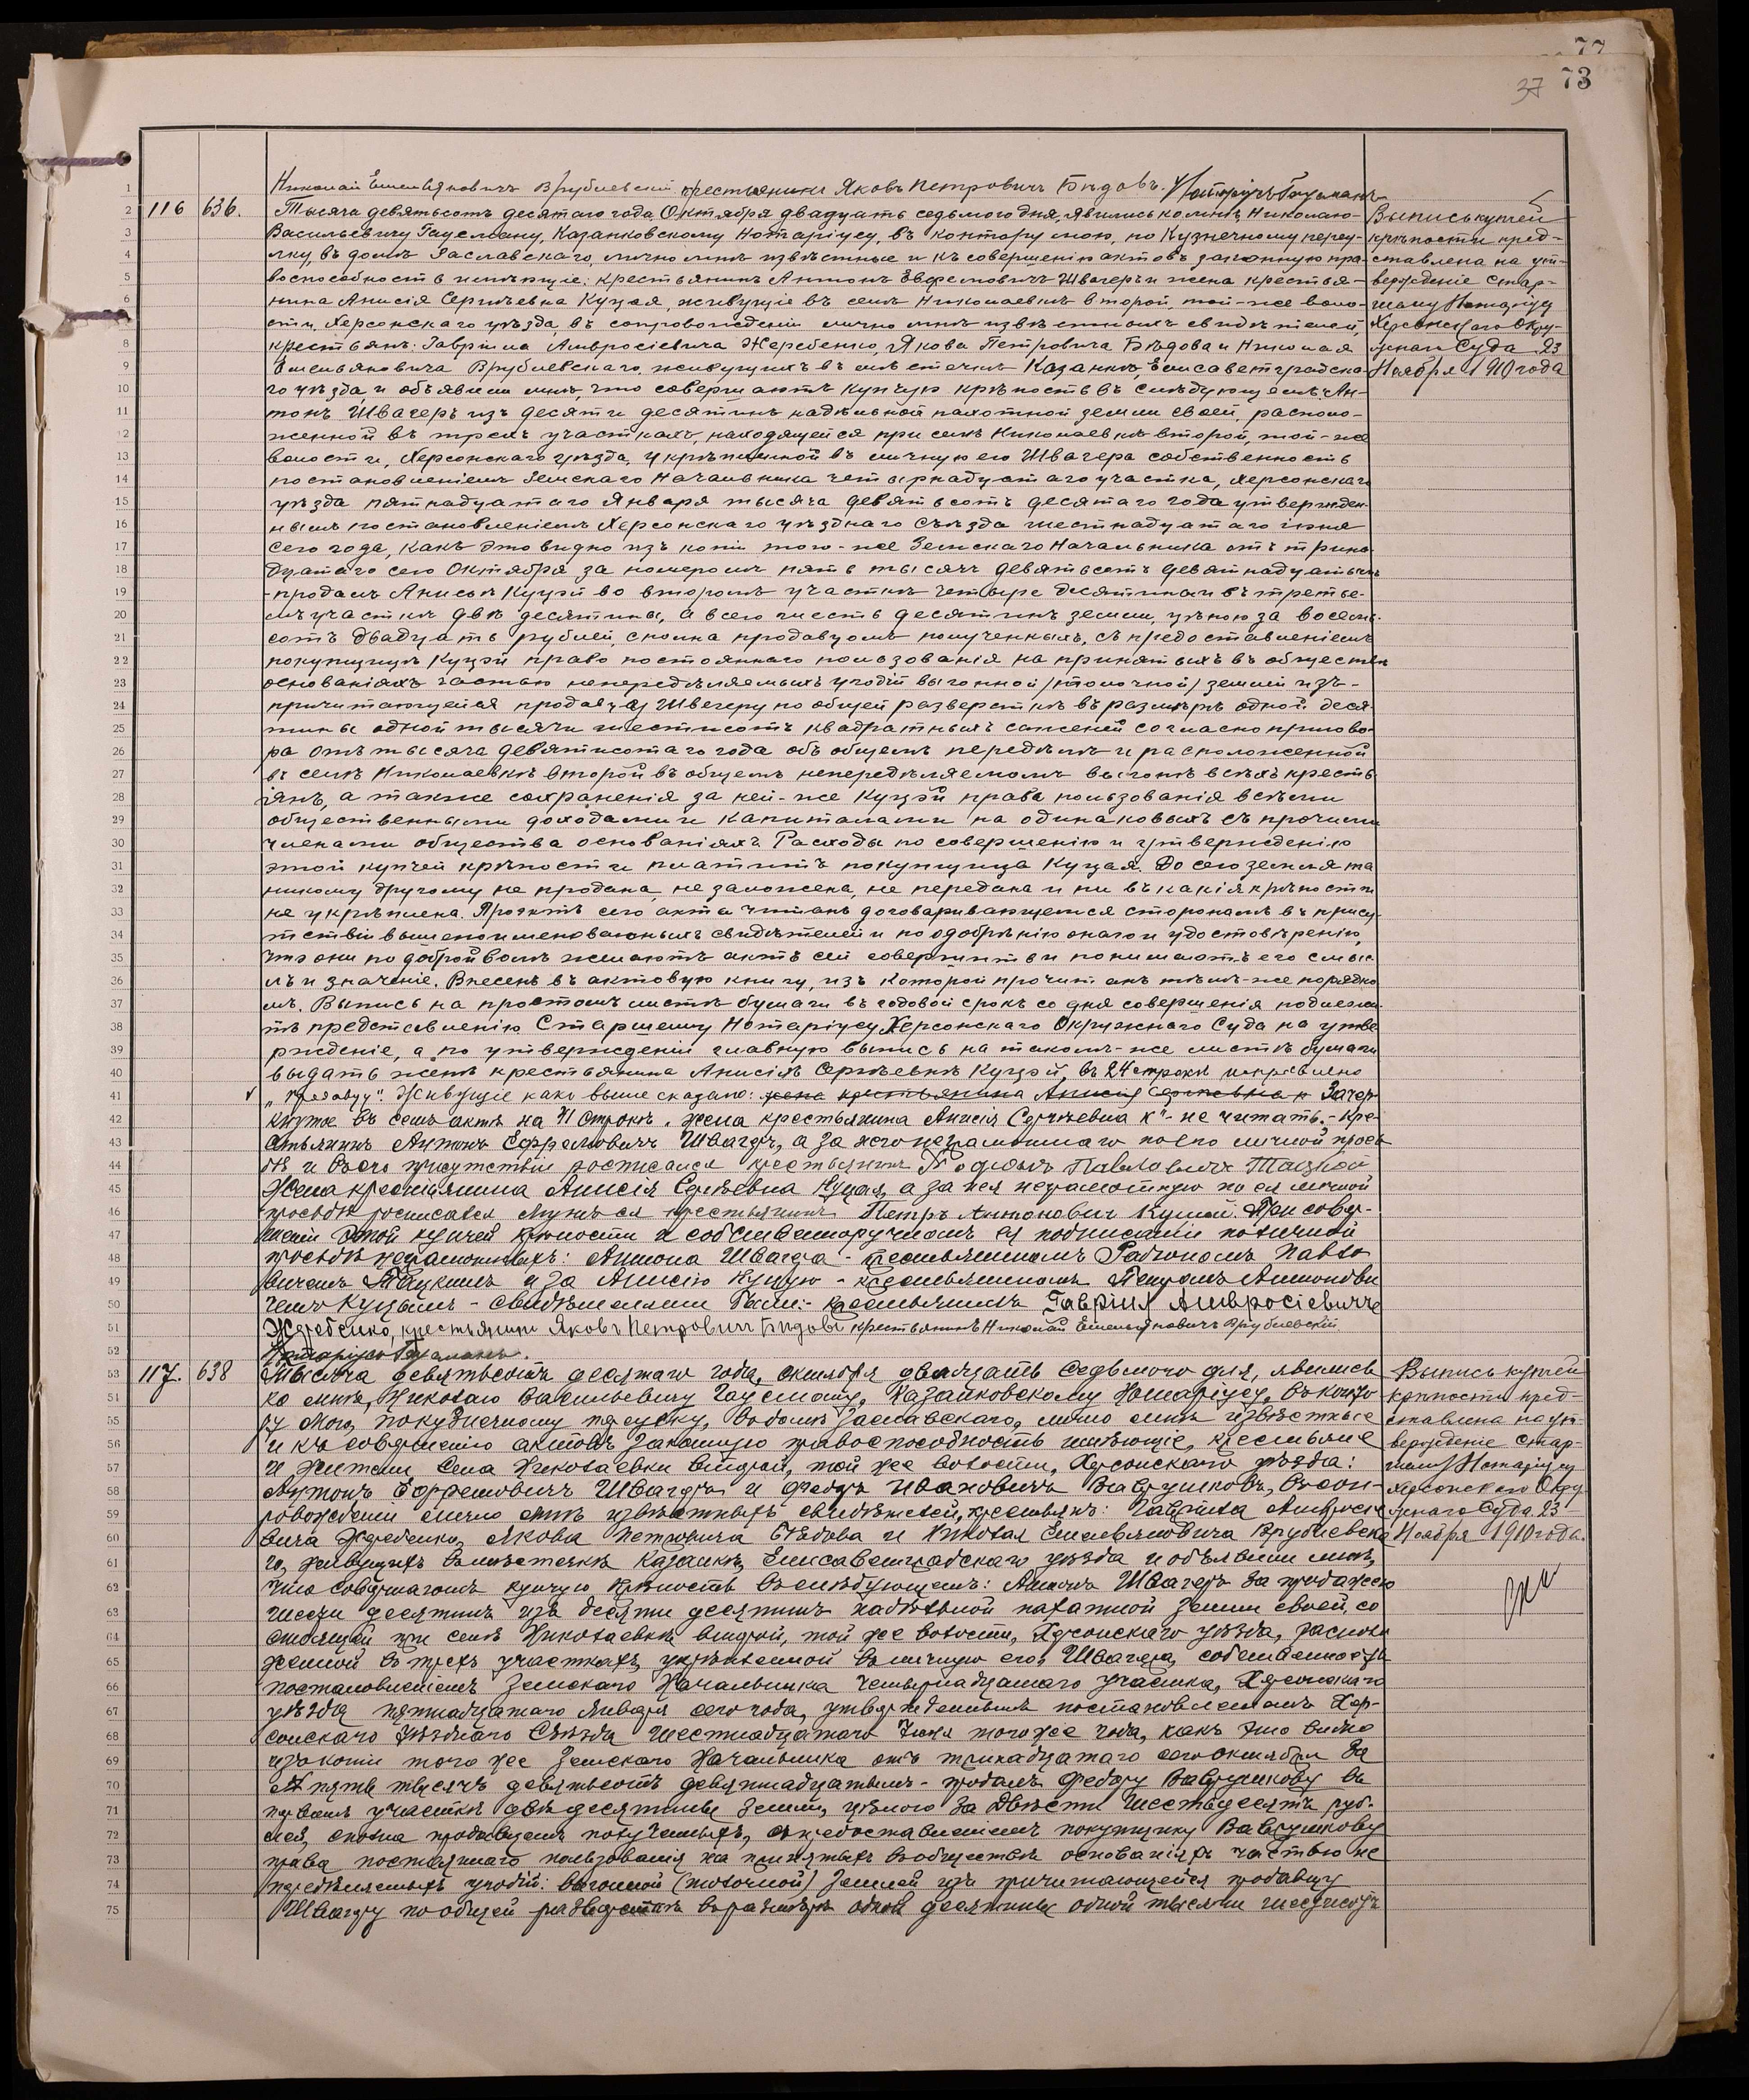 73
37
Николай Емельяновичъ Врублевскій крестьянинъ Яковъ Петровичъ Бѣдовъ. Нотаріусъ Гаусманъ
116 636. Тысяча девятьсотъ десятаго года Октября двадцать седьмого дня, явились ко мнѣ, Николаю
Васильевичу Гаусману, Казанковскому Нотаріусу, въ контору мою, по Кузнечному переу-
лку, въ домѣ Заславскаго, лично мнѣ извѣстные и къ совершенію актовъ законную пра-
воспособность имѣющіе: крестьянинъ Антонъ Евфремовичъ Швагеръ и жена крестья-
нина Анисія Сергѣевна Куцая, живущіе въ селѣ Николаевкѣ второй, той-же воло-
сти, Херсонскаго уѣзда, въ сопровожденіи лично мнѣ извѣстныхъ свидѣтелей,
крестьянъ: Гавріила Амвросіевича Жеребенко, Якова Петровича Бѣдова и Николая
Емельяновича Врублевскаго, живущихъ въ мѣстечкѣ Казанкѣ, Елисаветградска-
го уѣзда, и объявили мнѣ, что совершаютъ купчую крѣпость въ слѣдующемъ: Ан-
тонъ Швагеръ изъ десяти десятинъ надѣльной пахотной земли своей, располо-
женной въ трехъ участкахъ, находящейся при селѣ Николаевкѣ второй, той-же
волости, Херсонскаго уѣзда, укрѣпленной въ личную его Швагера собственность
постановленіемъ Земскаго Начальника четырнадцатаго участка, Херсонскаго
уѣзда пятнадцатаго Января тысяча девятьсотъ десятаго года утвержден-
нымъ постановленіемъ Херсонскаго уѣзднаго съѣзда шестнадцатаго іюня
сего года, какъ это видно изъ копіи того-же Земскаго Начальника отъ трина-
дцатаго сего Октября за номеромъ пять тысячъ девятьсотъ девятнадцатымъ
-продалъ Анисьѣ Куцэй во второмъ участкѣ четыре десятины и въ третье-
мъ участкѣ двѣ десятины, а всего шесть десятинъ земли, цѣною за восемь-
сотъ двадцать рублей, сполна продавцомъ полученныхъ, съ предоставленіемъ
покупщицѣ Куцэй право постояннаго пользованія на принятыхъ въ обществѣ
основаніяхъ частью непередѣляемыхъ угодій выгонной /толочной/ землей изъ-
причитающейся продавцу Швагеру по общей разверсткѣ въ размѣрѣ одной деся-
тины одной тысячи шестисотъ квадратныхъ саженей согласно пригово-
ра отъ тысяча девятисотаго года объ общемъ передѣлѣ и расположенной
въ селѣ Николаевкѣ второй въ общемъ непередѣляемомъ выгонѣ всѣхъ кресть-
янъ, а также сохраненія за ней-же Куцэй права пользованія всѣми
общественными доходами и капиталами на одинаковыхъ съ прочими
членами общества основаніяхъ. Расходы по совершенію и утвержденію
этой купчей крѣпости платитъ покупщица Куцая. До сего земля та
никому другому не продана, не заложена, не передана и ни въ какія крѣпости
не укрѣплена. Проэктъ сего акта читанъ договаривающемся сторонамъ въ прису-
тствіи вышепоименованныхъ свидѣтелей и по одобрѣнію онаго и удостовѣренію,
что они по доброй волѣ желаютъ актъ сей совершить и понимаютъ его смыс-
лъ и значеніе. Внесенъ въ актовую книгу, изъ которой прочитанъ тѣмъ-же порядко-
мъ. Выпись на простомъ листѣ бумаги въ годовой срокъ со дня совершенія подлежи-
тъ представленію Старшему Нотаріусу Херсонскаго Окружнаго Суда на утве-
ржденіе, а по утвержденіи главную выпись на такомъ-же листѣ бумаги
выдать женѣ крестьянина Анисіѣ Сергѣевнѣ Куцэй, въ 24 строкѣ исправлено
"продавцу". Живущіе какъ выше сказано: жена крестьянина Анисія Сергѣевна К Зачер-
кнутое въ семъ актѣ на 41 строкѣ "жена крестьянина Анисія Сергѣевна К"- не читать.- Кре-
стьянинъ Антонъ Ефремовичъ Швагеръ, а за него неграмотнаго по его личной прось-
бѣ и въ его присутствіи росписался крестьянинъ Родіонъ Павловичъ Тацкій
Жена крестьянина Анисія Сергѣевна Куцая, а за нея неграмотную по ея личной
просьбѣ росписался мужъ ея крестьянинъ Петръ Антоновичъ Куцый. При совер-
шеніи этой купчей крѣпости и собственноручномъ ея подписаніи по личной
просьбѣ неграмотныхъ: Антона Швагера - крестьяниномъ Родіономъ Павло-
вичемъ Тацкимъ и за Анисію Куцую - крестьяниномъ Петромъ Антонови-
чемъ Куцымъ - свидѣтелями были: крестьянинъ Гавріилъ Амвросіевичъ
Жеребенко, крестьянинъ Яковъ Петровичъ Бѣдовъ крестьянинъ Николай Емельяновичъ Врублевскій
Нотаріусъ Гаусманъ.
Выпись купчей
крѣпости пред-
ставлена на ут-
вержденіе Стар-
шему Нотаріусу
Херсонскаго Окру-
жнаго Суда 23
Ноября 1910 года
117. 638 Тысяча девятьсотъ десятаго года, октября двадцать седьмого дня, явились
ко мнѣ, Николаю Васильевичу Гаусману, Казанковскому Нотаріусу, въ конто-
ру мою, по Кузнечному переулку, въ домѣ Заславскаго, лично мнѣ извѣстные
и къ совершенію актовъ законную правоспособность имѣющіе, крестьяне
и жители села Николаевки второй, той же волости, Херсонскаго уѣзда:
Антонъ Ефремовичъ Швагеръ и Федоръ Ивановичъ Вавушковъ, въ соп-
ровожденіи лично мнѣ извѣстныхъ свидѣтелей, крестьянъ: Гавріила Амвросіе-
вича Жеребенко, Якова Петровича Бѣдова и Николая Емельяновича Врублевска-
го, живущихъ въ мѣстечкѣ Казанкѣ, Елисаветградскаго уѣзда и объявили мнѣ,
что совершаютъ купчую крѣпость въ слѣдующемъ: Антонъ Швагеръ за продажею
шести десятинъ изъ десяти десятинъ надѣльной пахатной земли своей, со-
стоящей при селѣ Николаевкѣ второй, той же волости, Херсонскаго уѣзда, располо-
женной въ трехъ участкахъ, укрѣпленной въ личную его, Швагера, собственность
постановленіемъ Земскаго Начальника четырнадцатаго участка, Херсонскаго
уѣзда пятнадцатаго Января сего года, утвержденнымъ постановленіемъ Хер-
сонскаго Уѣзднаго Съѣзда шестнадцатаго Іюня того же года, какъ это видно
изъ копіи того же Земскаго Начальника отъ тринадцатаго сего октября за
№ пять тысячъ девятьсотъ девятнадцатымъ - продалъ Федору Вавушкову въ
первомъ участкѣ двѣ десятины земли, цѣною за двѣсти шестьдесятъ руб-
лей, сполна продавцемъ полученныхъ, съ предоставленіемъ покупщику Вавушкову
права постояннаго пользованія на принятыхъ въ обществѣ основаніяхъ частью не
передѣляемыхъ угодій: выгонной (толочной) землей изъ причитающейся продавцу
Швагеру по общей разверсткѣ въ размѣрѣ одной десятины одной тысячи шестисотъ
Выпись купчей
крѣпости пред-
ставлена на ут-
вержденіе Стар-
шему Нотаріусу
Херсонскаго Окру-
жнаго Суда 23
Ноября 1910 года.